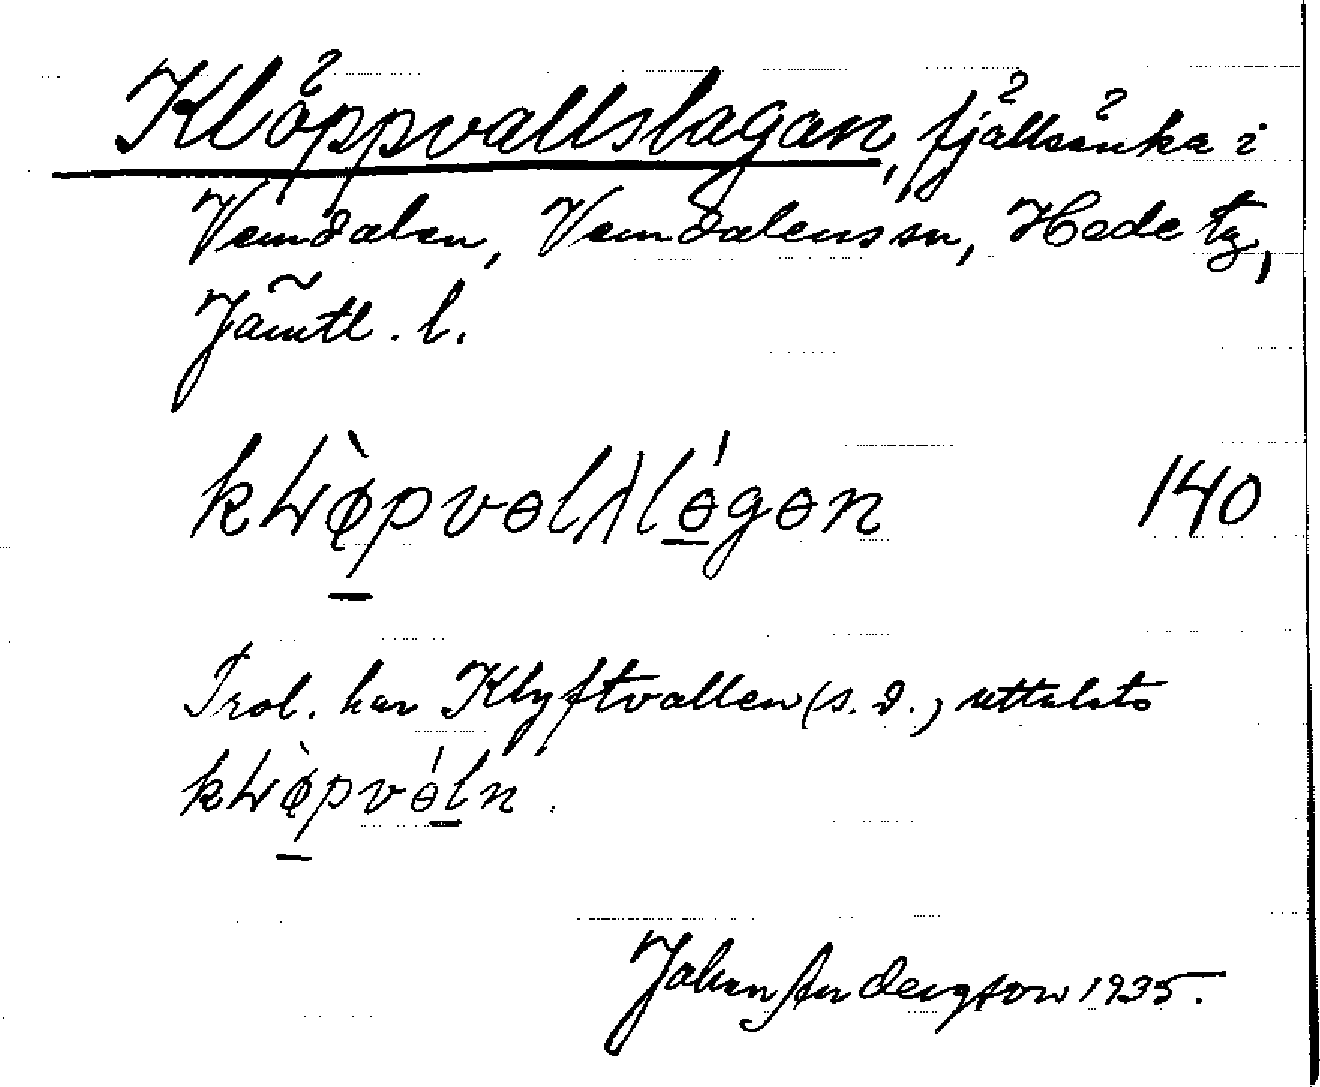 Klöppvallslagan, fjällsänka i
Vemdalen, Vemdalens sn, Hede tg,
Jämtl. l.
140
Trol. har Klyftvallen (s. d.) uttalats
Johan Andersson 1935.